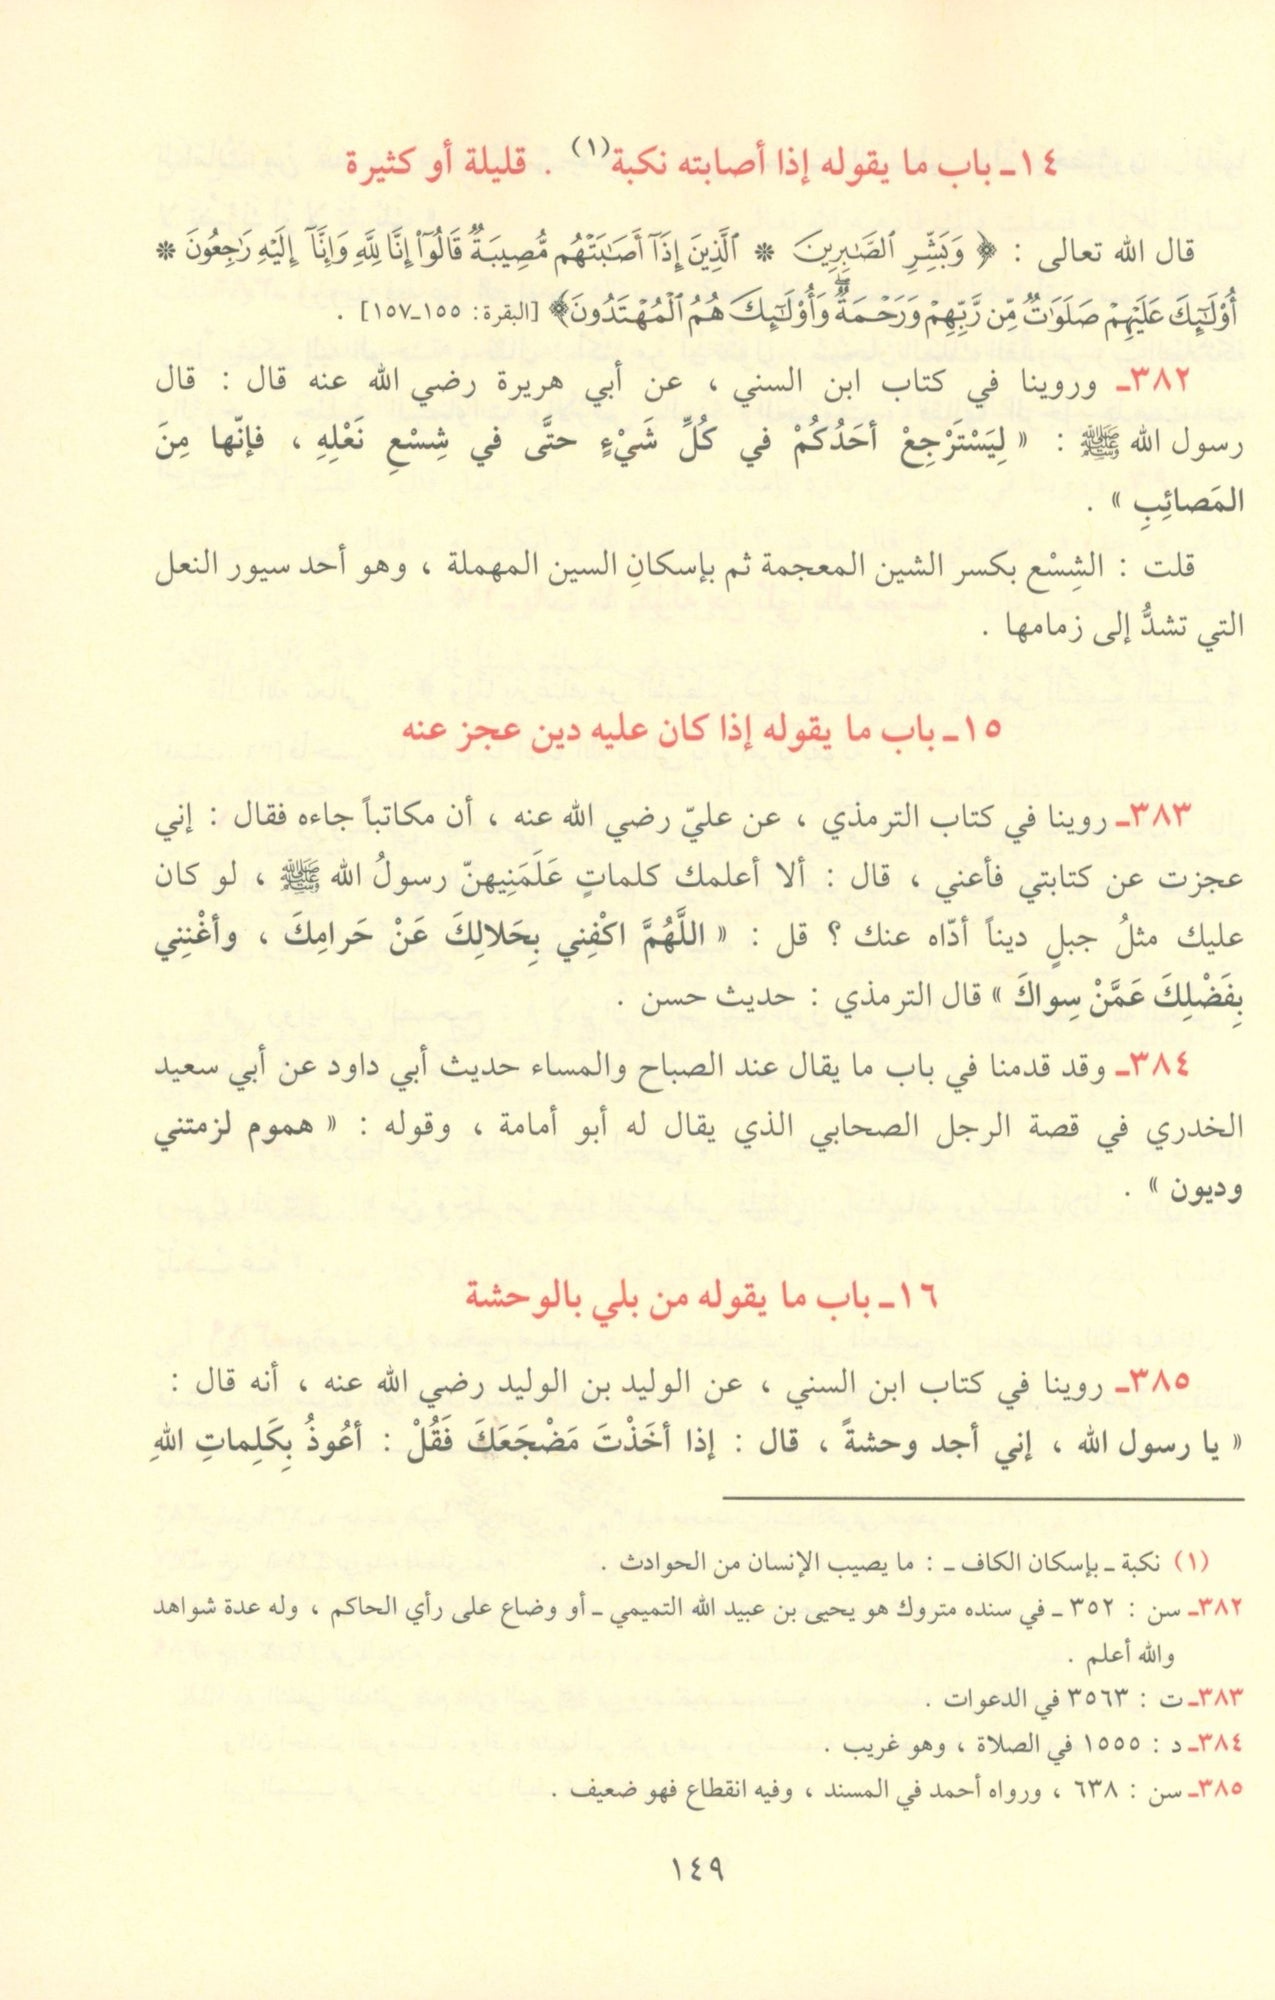 ١٤ـ باب ما يقوله إذا أصابته نكبة(١) . قليلة أو كثيرة
قال الله تعالى : ﴿ وَبَشِّرِ ٱلصَّـٰبِرِينَ * ٱلَّذِينَ إِذَآ أَصَـٰبَتْهُم مُّصِيبَةٌ قَالُوٓا۟ إِنَّا لِلَّهِ وَإِنَّآ إِلَيْهِ رَٰجِعُونَ *
أُو۟لَـٰٓئِكَ عَلَيْهِمْ صَلَوَٰتٌ مِّن رَّبِّهِمْ وَرَحْمَةٌ ۖ وَأُو۟لَـٰٓئِكَ هُمُ ٱلْمُهْتَدُونَ﴾ [البقرة: ١٥٥ـ١٥٧] .
٣٨٢ـ وروينا في كتاب ابن السني ، عن أبي هريرة رضي الله عنه قال : قال
رسول الله ﷺ : « لِيَسْتَرْجِعْ أحَدُكُمْ في كُلِّ شَيْءٍ حتَّى في شِسْعِ نَعْلِهِ ، فإنّها مِنَ
المَصائِبِ » .
قلت : الشِسْع بكسر الشين المعجمة ثم بإسكانِ السين المهملة ، وهو أحد سيور النعل
التي تشدُّ إلى زمامها .
١٥ـ باب ما يقوله إذا كان عليه دين عجز عنه
٣٨٣ـ روينا في كتاب الترمذي ، عن عليّ رضي الله عنه ، أن مكاتباً جاءه فقال : إني
عجزت عن كتابتي فأعني ، قال : ألا أعلمك كلماتٍ عَلَمَنِيهنّ رسولُ الله ﷺ ، لو كان
عليك مثلُ جبلٍ ديناً أدّاه عنك ؟ قل : « اللَّهُمَّ اكْفِني بِحَلالِكَ عَنْ حَرامِكَ ، وأغْنِني
بِفَضْلِكَ عَمَّنْ سِواكَ » قال الترمذي : حديث حسن .
٣٨٤ـ وقد قدمنا في باب ما يقال عند الصباح والمساء حديث أبي داود عن أبي سعيد
الخدري في قصة الرجل الصحابي الذي يقال له أبو أمامة ، وقوله : « هموم لزمتني
وديون » .
١٦ـ باب ما يقوله من بلي بالوحشة
٣٨٥ـ روينا في كتاب ابن السني ، عن الوليد بن الوليد رضي الله عنه ، أنه قال :
« يا رسول الله ، إني أجد وحشةً ، قال : إذا أخَذْتَ مَضْجَعَكَ فَقُلْ : أعُوذُ بِكَلِماتِ اللهِ
(١) نكبة ـ بإسكان الكاف ـ : ما يصيب الإنسان من الحوادث .
٣٨٢ـ سن : ٣٥٢ ـ في سنده متروك هو يحيى بن عبيد الله التميمي ـ أو وضاع على رأي الحاكم ، وله عدة شواهد
والله أعلم .
٣٨٣ـ ت : ٣٥٦٣ في الدعوات .
٣٨٤ـ د : ١٥٥٥ في الصلاة ، وهو غريب .
٣٨٥ـ سن : ٦٣٨ ، ورواه أحمد في المسند ، وفيه انقطاع فهو ضعيف .
١٤٩